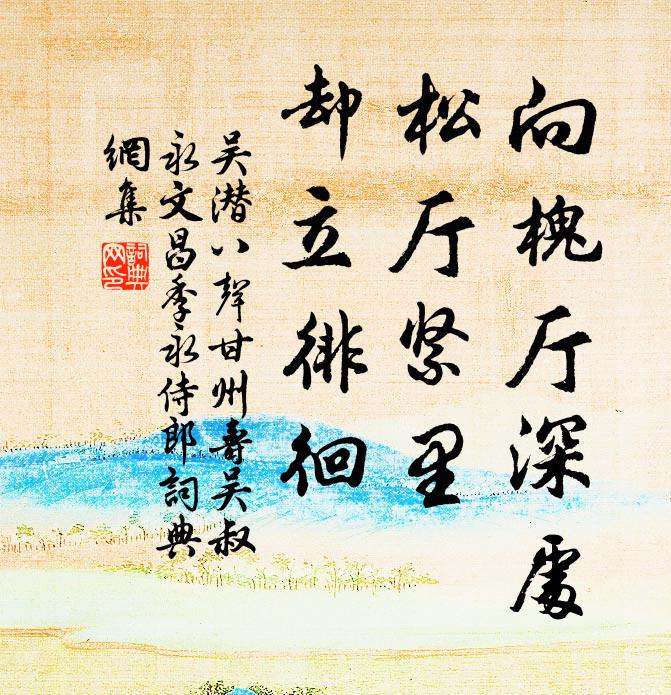 向槐厅深處
松厅紧里
却立徘徊
吴潜八聲甘州壽吴叔
永文昌季永侍郎詞典
網集
詞典
网印